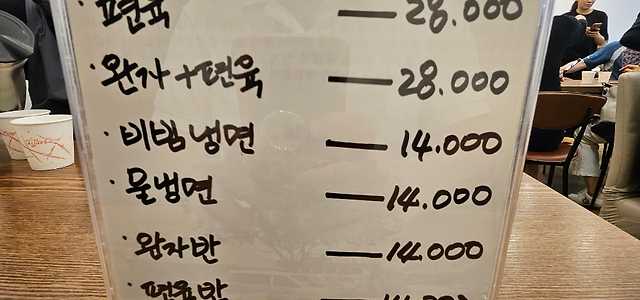 편육 — 28.000
· 완자+편육 — 28.000
· 비빔냉면 — 14.000
· 물냉면 — 14.000
· 완자반 — 14.000
· 편육반 — 14.000